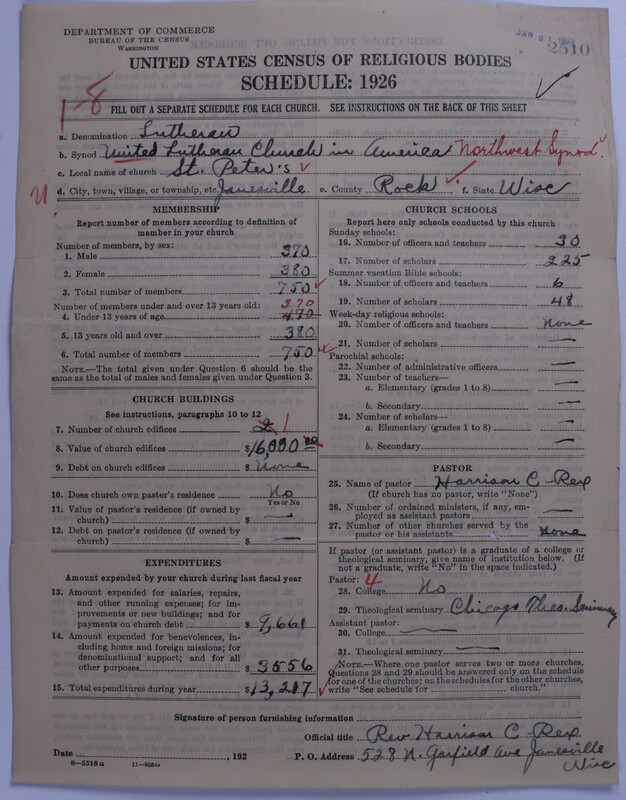 DEPARTMENT OF COMMERCE
BUREAU OF THE CENSUS
WASHINGTON
JAN 31
2510
UNITED STATES CENSUS OF RELIGIOUS BODIES
SCHEDULE: 1926
1-8
FILL OUT A SEPARATE SCHEDULE FOR EACH CHURCH. SEE INSTRUCTIONS ON THE BACK OF THIS SHEET
a. Denomination Lutheran
b. Synod United Lutheran Church in America Northwest Synod
c. Local name of church St. Peter's
d. City, town, village, or township, etc. Janesville e. County Rock f. State Wisc
MEMBERSHIP
Report number of members according to definition of
member in your church
Number of members, by sex:
1. Male 370
2. Female 380
3. Total number of members 750
Number of members under and over 13 years old: 370
4. Under 13 years of age 470
5. 13 years old and over 380
6. Total number of members 750
NOTE.—The total given under Question 6 should be the
same as the total of males and females given under Question 3.
CHURCH BUILDINGS
See instructions, paragraphs 10 to 12
7. Number of church edifices 2 1
8. Value of church edifices $16,000 00
9. Debt on church edifices $ None
10. Does church own pastor's residence No
Yes or No
11. Value of pastor's residence (if owned by
church) $ —
12. Debt on pastor's residence (if owned by
church) $ —
EXPENDITURES
Amount expended by your church during last fiscal year
13. Amount expended for salaries, repairs,
and other running expenses; for im-
provements or new buildings; and for
payments on church debt $ 9,661
14. Amount expended for benevolences,
including home and foreign missions; for
denominational support; and for all
other purposes $ 3556
15. Total expenditures during year $ 13,217
CHURCH SCHOOLS
Report here only schools conducted by this church
Sunday schools:
16. Number of officers and teachers 30
17. Number of scholars 225
Summer vacation Bible schools:
18. Number of officers and teachers 6
19. Number of scholars 48
Week-day religious schools:
20. Number of officers and teachers None
21. Number of scholars —
Parochial schools:
22. Number of administrative officers —
23. Number of teachers—
a. Elementary (grades 1 to 8) —
b. Secondary —
24. Number of scholars—
a. Elementary (grades 1 to 8) —
b. Secondary —
PASTOR
25. Name of pastor Harrison C. Rex
(If church has no pastor, write "None")
26. Number of ordained ministers, if any, em-
ployed as assistant pastors —
27. Number of other churches served by the
pastor or his assistants None
If pastor (or assistant pastor) is a graduate of a college or
theological seminary, give name of institution below. (If
not a graduate, write "No" in the space indicated.)
Pastor: 4
28. College No
29. Theological seminary Chicago Theo. Seminary
Assistant pastor:
30. College —
31. Theological seminary —
NOTE.—Where one pastor serves two or more churches,
Questions 28 and 29 should be answered only on the schedule
for one of the churches; on the schedules for the other churches,
write "See schedule for church."
Signature of person furnishing information
Official title Rev Harrison C. Rex
Date , 192 P. O. Address 528 N. Garfield Ave Janesville
Wisc
8-5518a